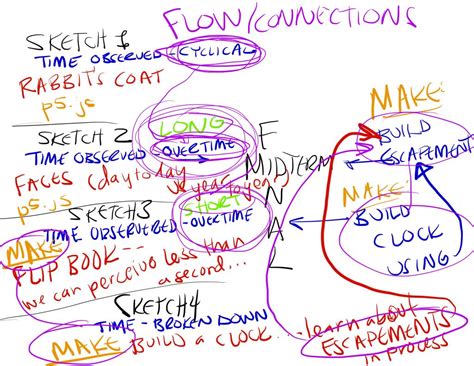 FLOW/CONNECTIONS
SKETCH 1
TIME OBSERVED - CYCLICAL
RABBIT'S COAT
p5.js
SKETCH 2
LONG
TIME OBSERVED OVERTIME
FACES (day to day
year to year)
p5.js
SKETCH3
SHORT
TIME OBSERVERED - OVERTIME
MAKE
FLIP BOOK --
we can perceive less than
a second...
SKETCH4
TIME - BROKEN DOWN
MAKE BUILD A CLOCK..
MIDTERM
FINAL
MAKE:
BUILD
ESCAPEMENT
MAKE:
BUILD
CLOCK
USING
learn about
ESCAPEMENTS
in process